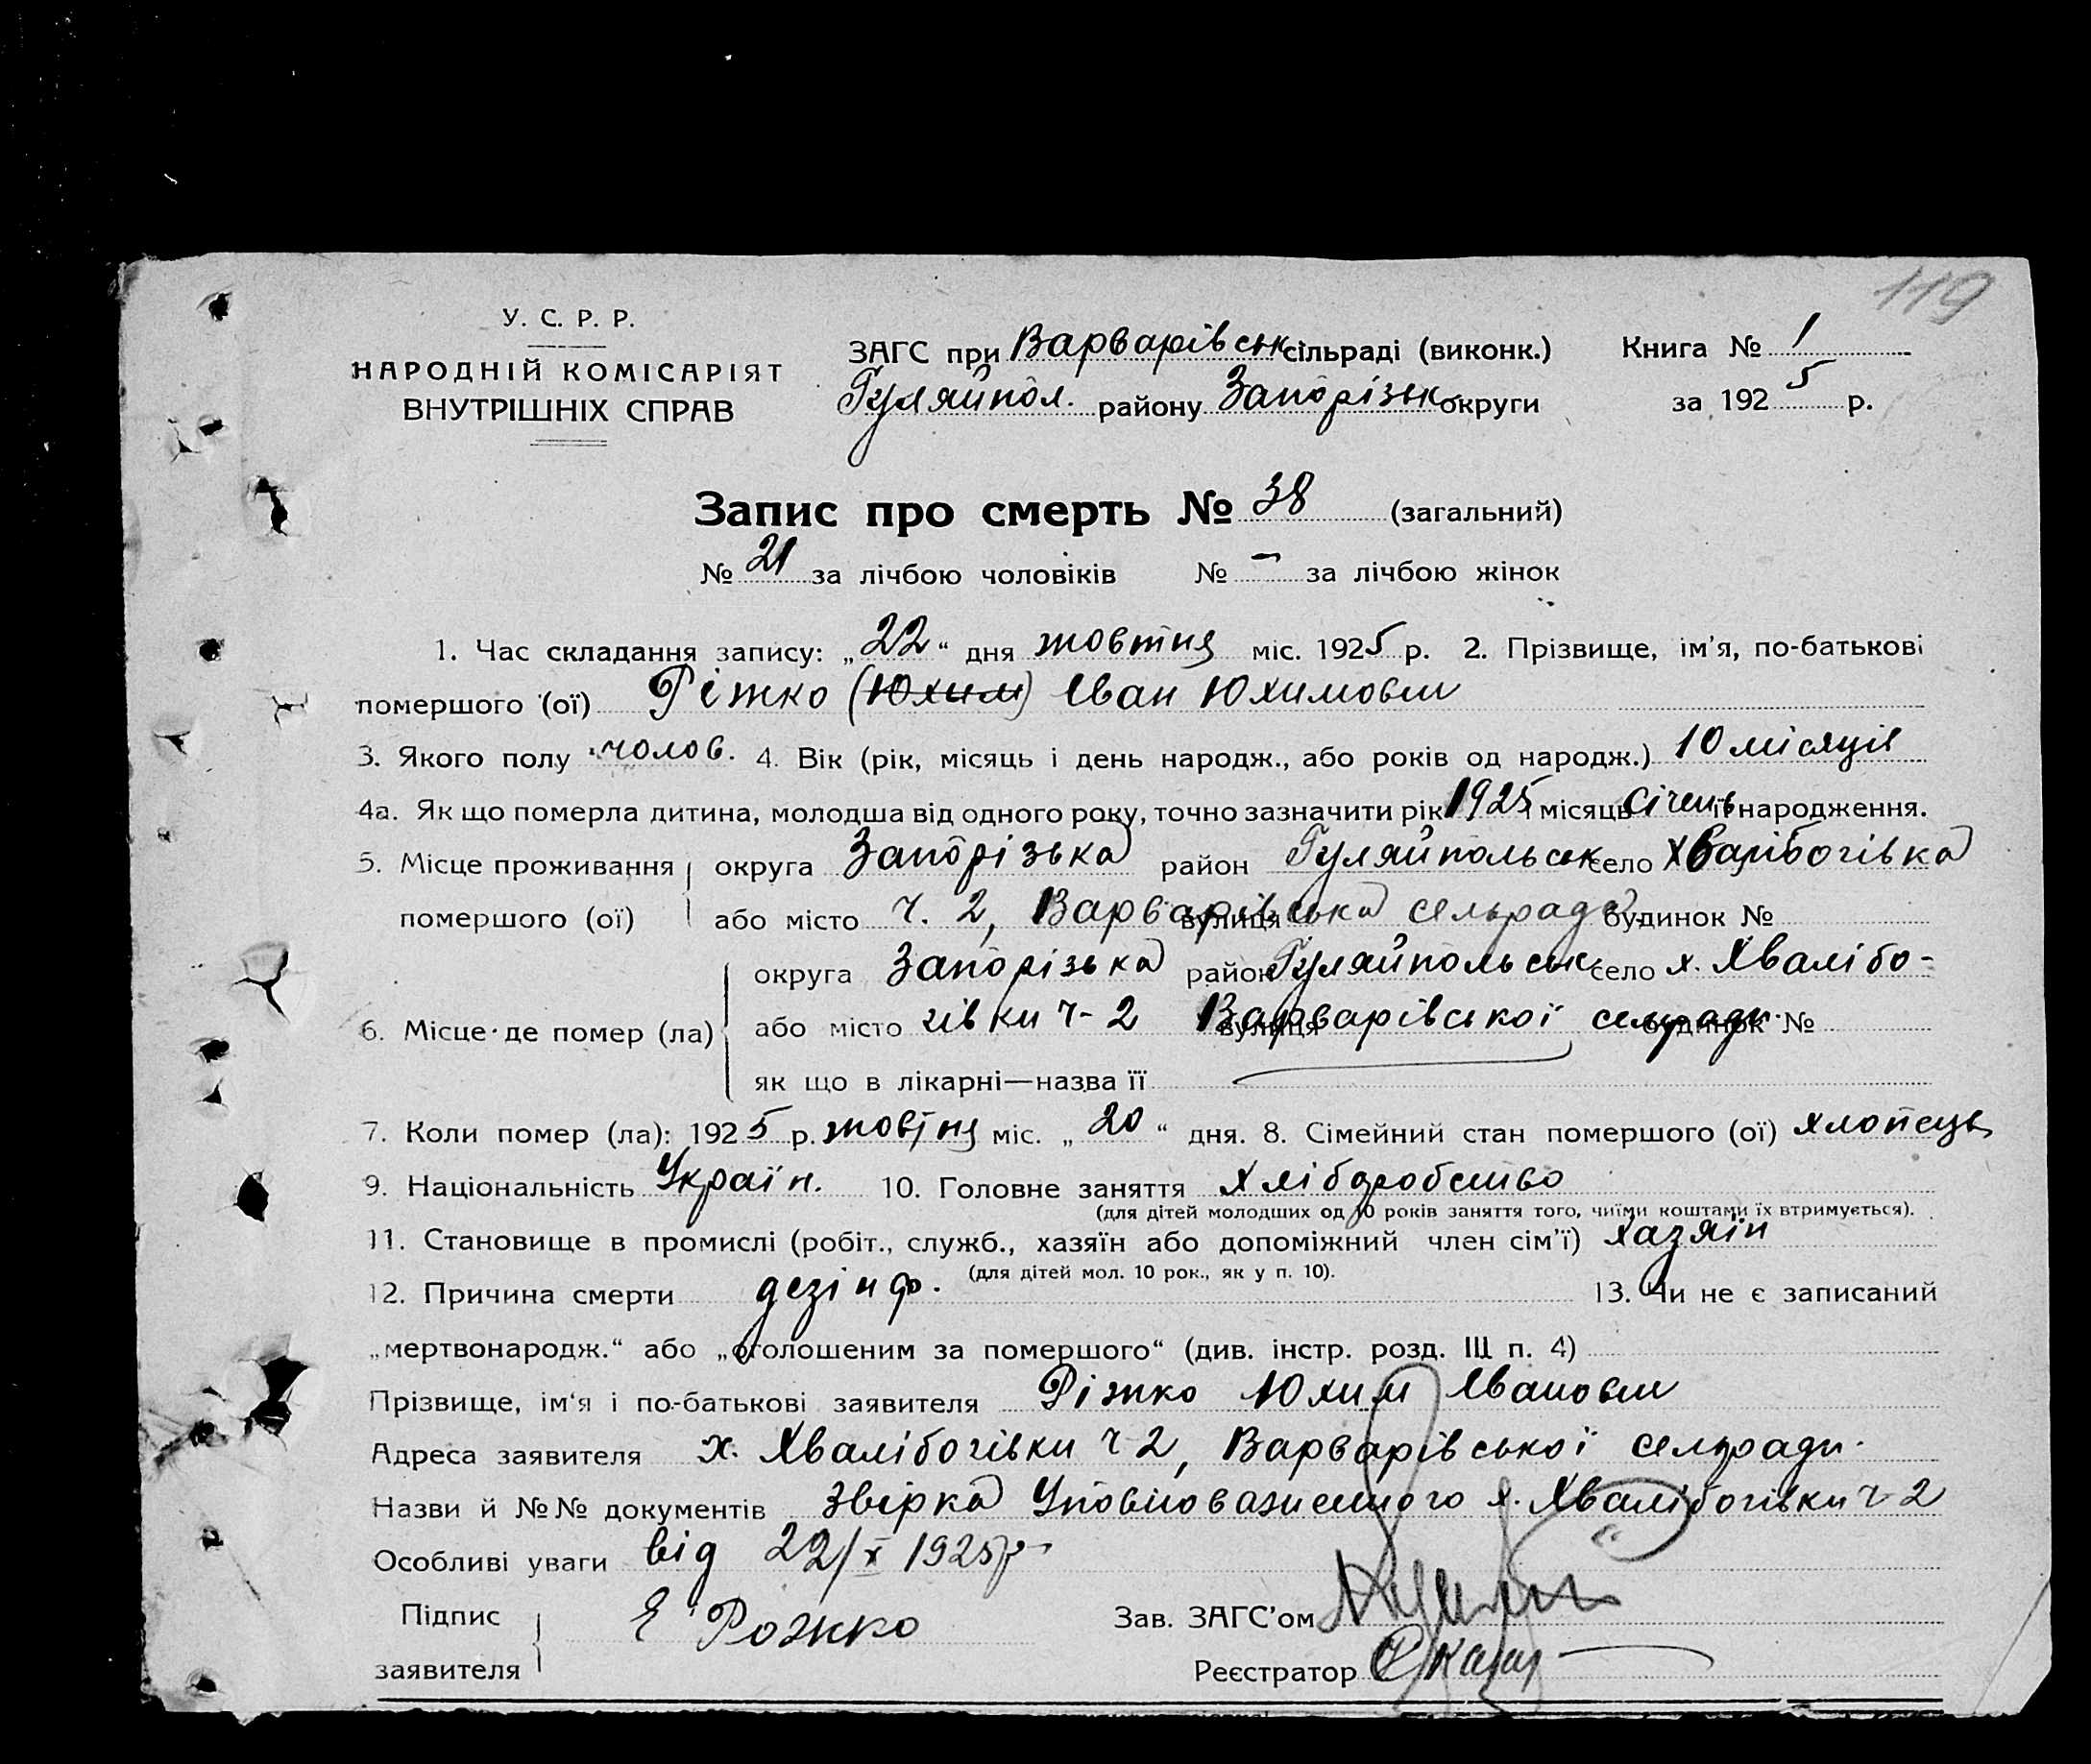 119
У. С. Р. Р.
НАРОДНІЙ КОМІСАРІЯТ
ВНУТРІШНІХ СПРАВ
ЗАГС при Варварівськ сільраді (виконк.)
Гуляйпол. району Запорізьк округи
Книга № 1
за 1925 р.
Запис про смерть № 38 (загальний)
№ 21 за лічбою чоловіків № – за лічбою жінок
1. Час складання запису: „22“ дня жовтня міс. 1925 р. 2. Прізвище, ім'я, по-батькові
помершого (ої) Ріжко (Юхим) Іван Юхимович
3. Якого полу чолов. 4. Вік (рік, місяць і день народж., або років од народж.) 10 місяців
4а. Як що померла дитина, молодша від одного року, точно зазначити рік 1925 і місяць січень її народження.
5. Місце проживання помершого (ої) округа Запорізька район Гуляйпольськ село Хвалібогівка
або місто ч. 2, Варварівська сельрада вулиця будинок №
6. Місце де помер (ла) округа Запорізька район Гуляйпольськ село х. Хвалібо-
або місто гівки ч-2 Варварівської сельради вулиця будинок №
як що в лікарні—назва її
7. Коли помер (ла): 1925 р. жовтня міс. „20“ дня. 8. Сімейний стан помершого (ої) хлопець
9. Національність Україн. 10. Головне заняття Хліборобство
(для дітей молодших од 10 років заняття того, чиїми коштами їх втримується).
11. Становище в промислі (робіт., служб., хазяїн або допоміжний член сім'ї) хазяїн
(для дітей мол. 10 рок., як у п. 10).
12. Причина смерти дезінф. 13. Чи не є записаний
„мертвонародж.“ або „оголошеним за помершого“ (див. інстр. розд. III п. 4)
Прізвище, ім'я і по-батькові заявителя Ріжко Юхим Іванович
Адреса заявителя х. Хвалібогівки ч 2, Варварівської сельради.
Назви й №№ документів Звірка Уповновазиеного х. Хвалібогівки ч 2
Особливі уваги від 22/X 1925 р
Підпис заявителя Е Рожко
Зав. ЗАГС'ом
Реєстратор